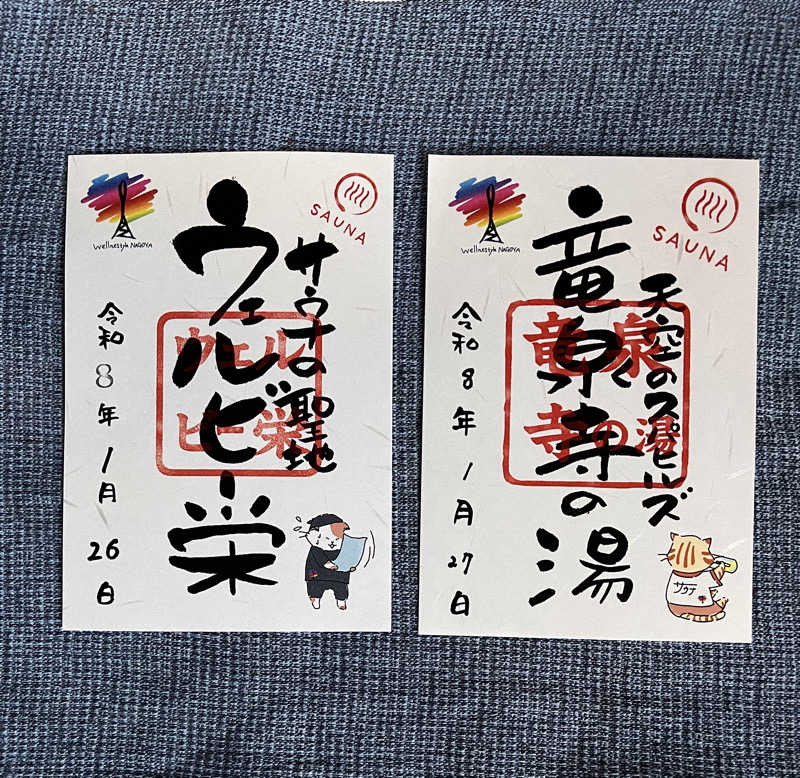 Wellnestyle NAGOYA
SAUNA
サウナの聖地
ウェルビー栄
ウェル
ビー栄
令和8年1月26日
Wellnestyle NAGOYA
SAUNA
天空のスパヒルズ
竜泉寺の湯
竜泉
寺の湯
令和8年1月27日
サウナ